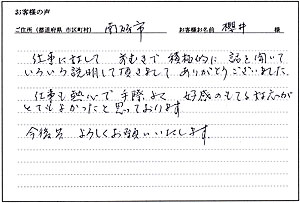 お客様の声
ご住所(都道府県 市区町村) 南砺市 お客様お名前 櫻井 様
仕事に対して 前むきで 積極的に 話を聞いて
いろいろ説明して頂きまして ありがとうございました。
仕事も熱心で 手際よく 好感のもてる対応が
とてもよかったと思っております
今後共 よろしくお願いいたします